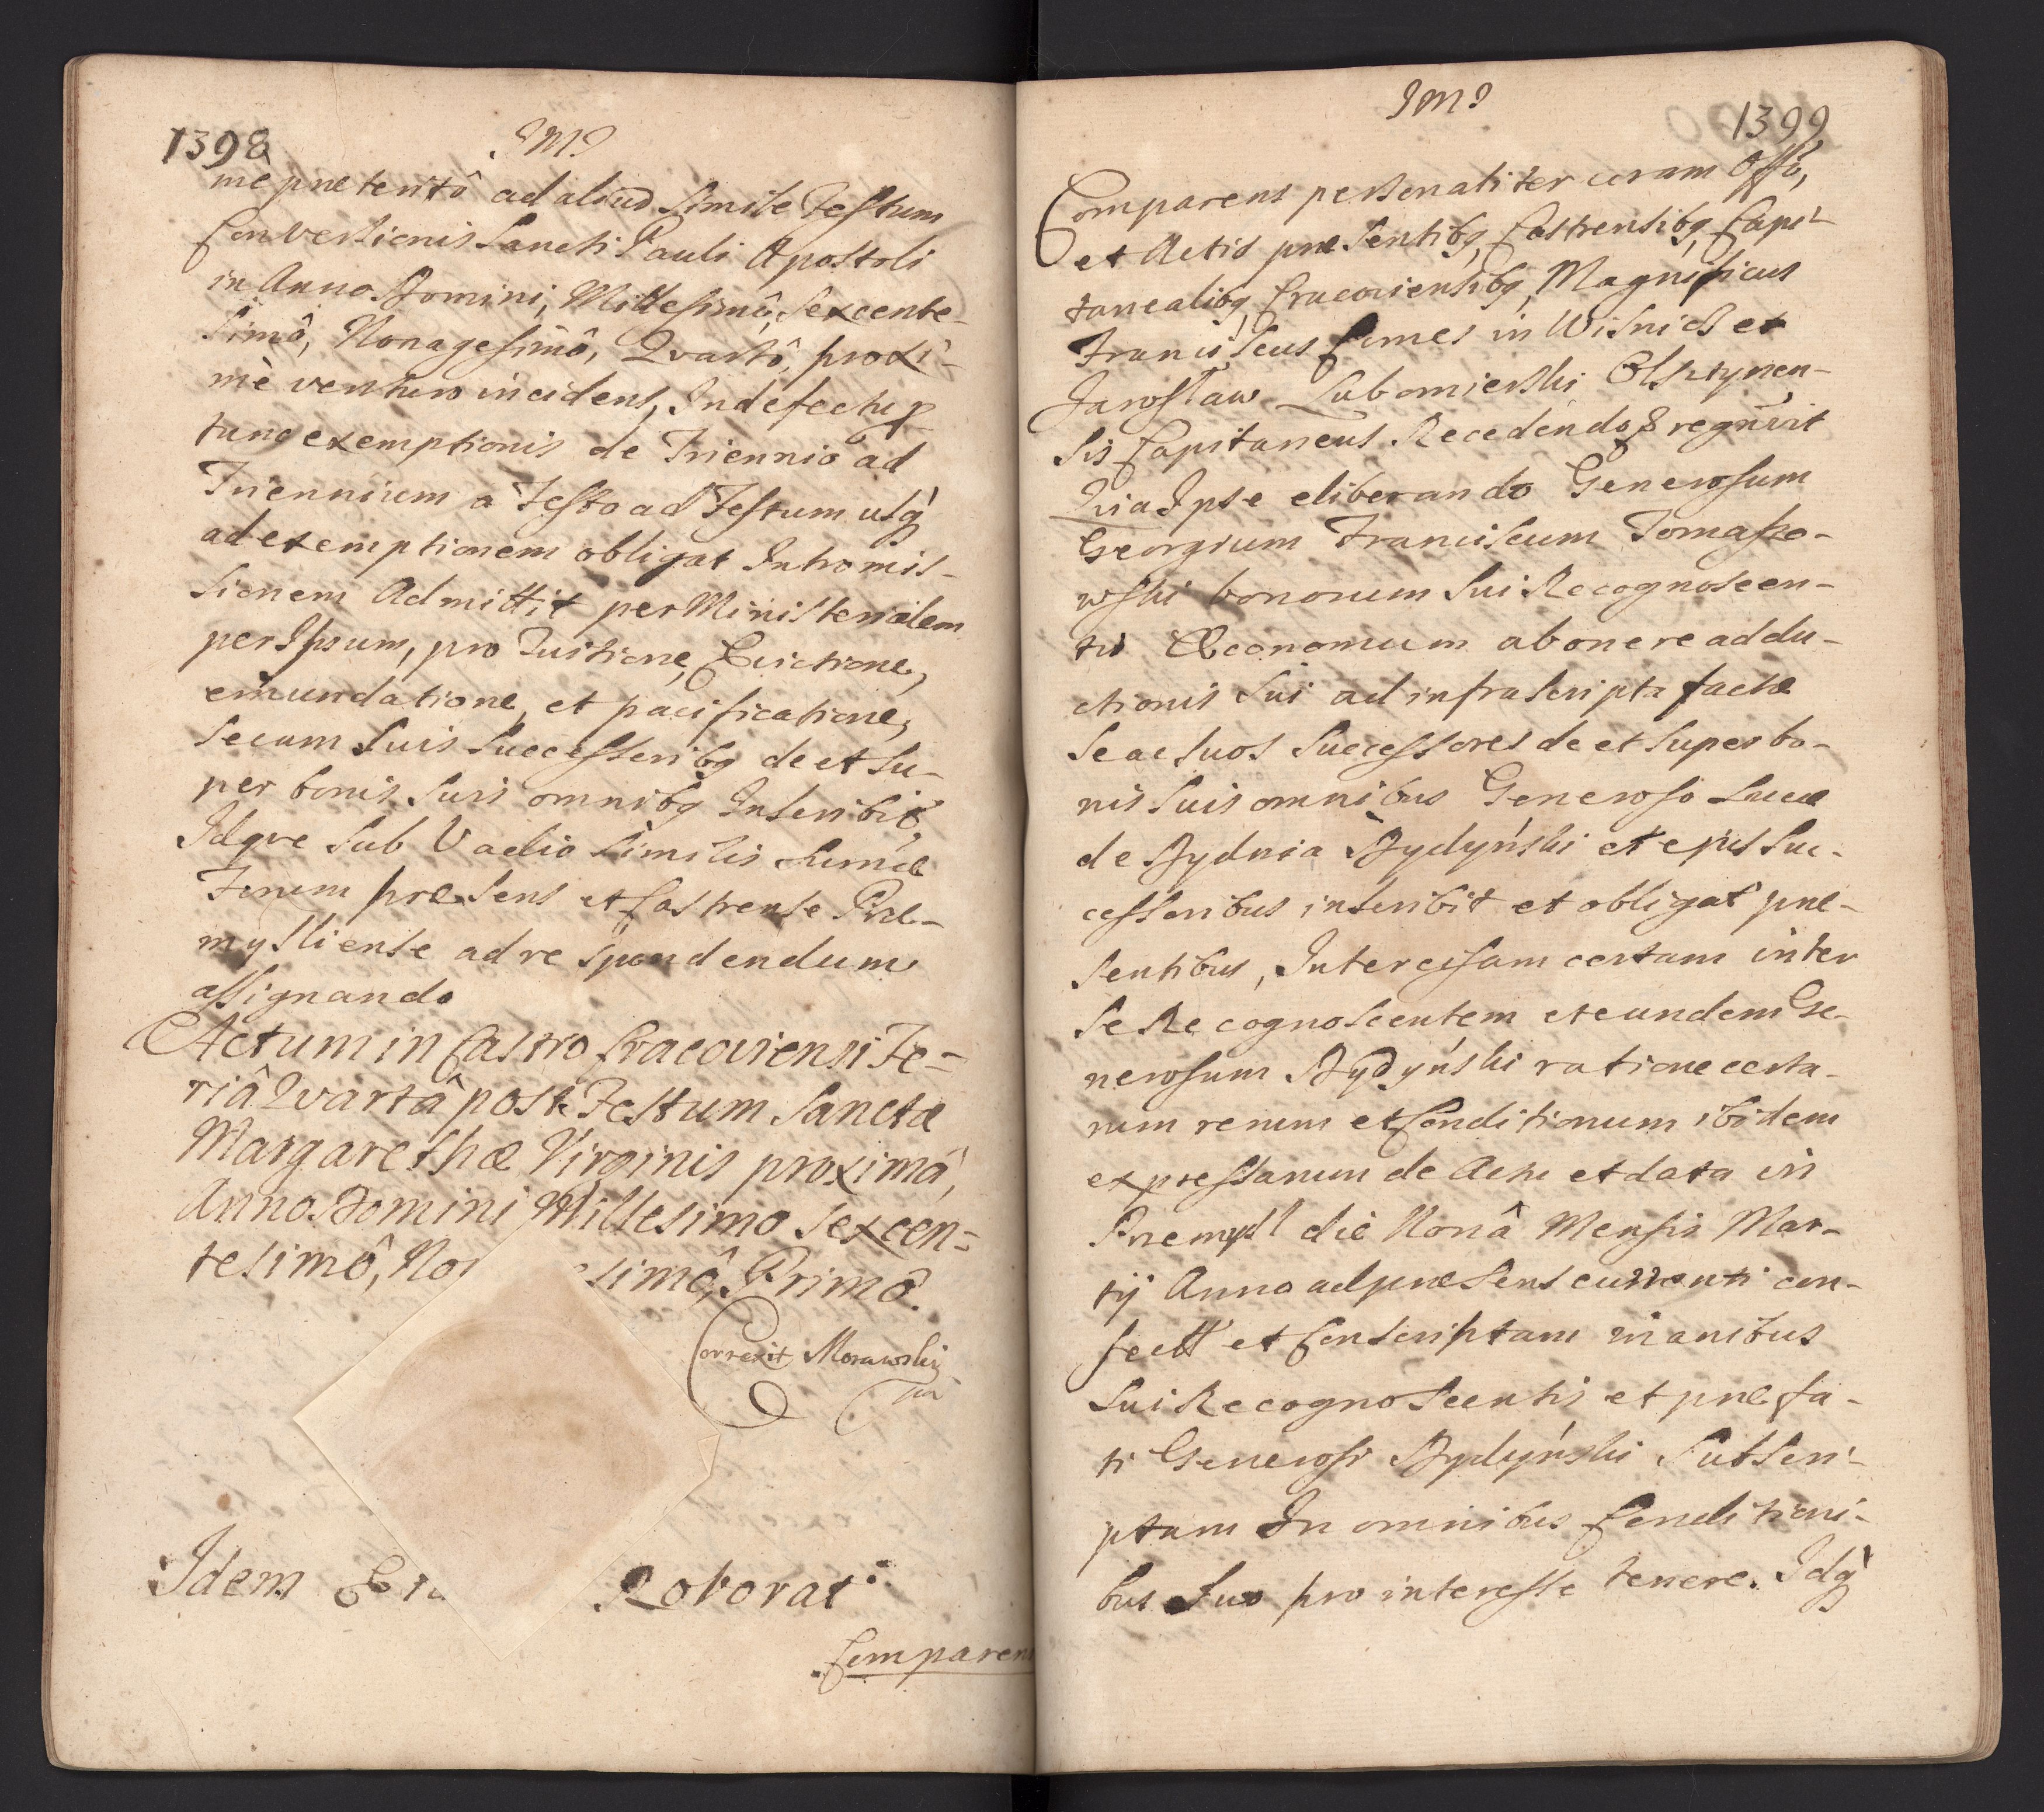 1398
JMJ
mè præteritô ad aliud simile Festum
Conversionis Sancti Pauli Apostoli
in Anno Domini, Millesimô, Sexcente-
simô, Nonagesimô, Qvartô, proxi-
mè venturo incidens, In defectu
tunc exemptionis de Triennio ad
Triennium a Festo ad Festum usq3
ad exemptionem obligat Intromis-
sionem Admittit per Ministerialem
per Ipsum, pro Tuitione, Evictione,
emundatione, et pacificatione,
secum suis Successorib9 de et su-
per bonis suis omnib9 Inscribit,
Idqve sub Vadio similis summæ
Forum præsens et Castrense Præ-
mysliense ad respondendum
assignando
Actum in Castro Cracoviensi Fe=
riâ Qvartâ post Festum Sanctæ
Margarethæ Virginis proximâ,
Anno Domini Millesimo Sexcen=
tesimô, No esimô, Primô.
Correxit Morawski
Idem Roborat
Comparens
JMJ
1399
Comparens personaliter coram Offo,
et Actis præsentib9 Castrensib9 Capi-
tanealib9 Cracoviensib9, Magnificus
Franciscus Comes in Wisnicz et
Jarosław Lubomierski Olsztynen-
sis Capitaneus Recedendo
Qvia Ipse eliberando Generosum
Georgium Franciscum Tomaszo-
wski bonorum sui Recognoscen-
tis Œconomum ab onere addu-
ctionis sui ad infrascripta factæ
se ac suos Successores de et super bo-
nis suis omnibus Generoso Lucæ
de Dydnia Dydyński et ejus Suc-
cessoribus inscribit et obligat præ-
sentibus, Intercisam certam inter
se Recognoscentem et eundem Ge-
nerosum Dydyński ratione certa-
rum rerum et Conditionum ibidem
expressarum de Actu et data in
Præmysl die Nonâ Mensis Mar-
tij Anno ad præsens currenti con-
fect et Conscriptam manibus
sui Recognoscentis et præfa-
ti Generosi Dydyński Subscri-
ptam In omnibus Conditioni-
bus suo pro interesse tenere. Idq3